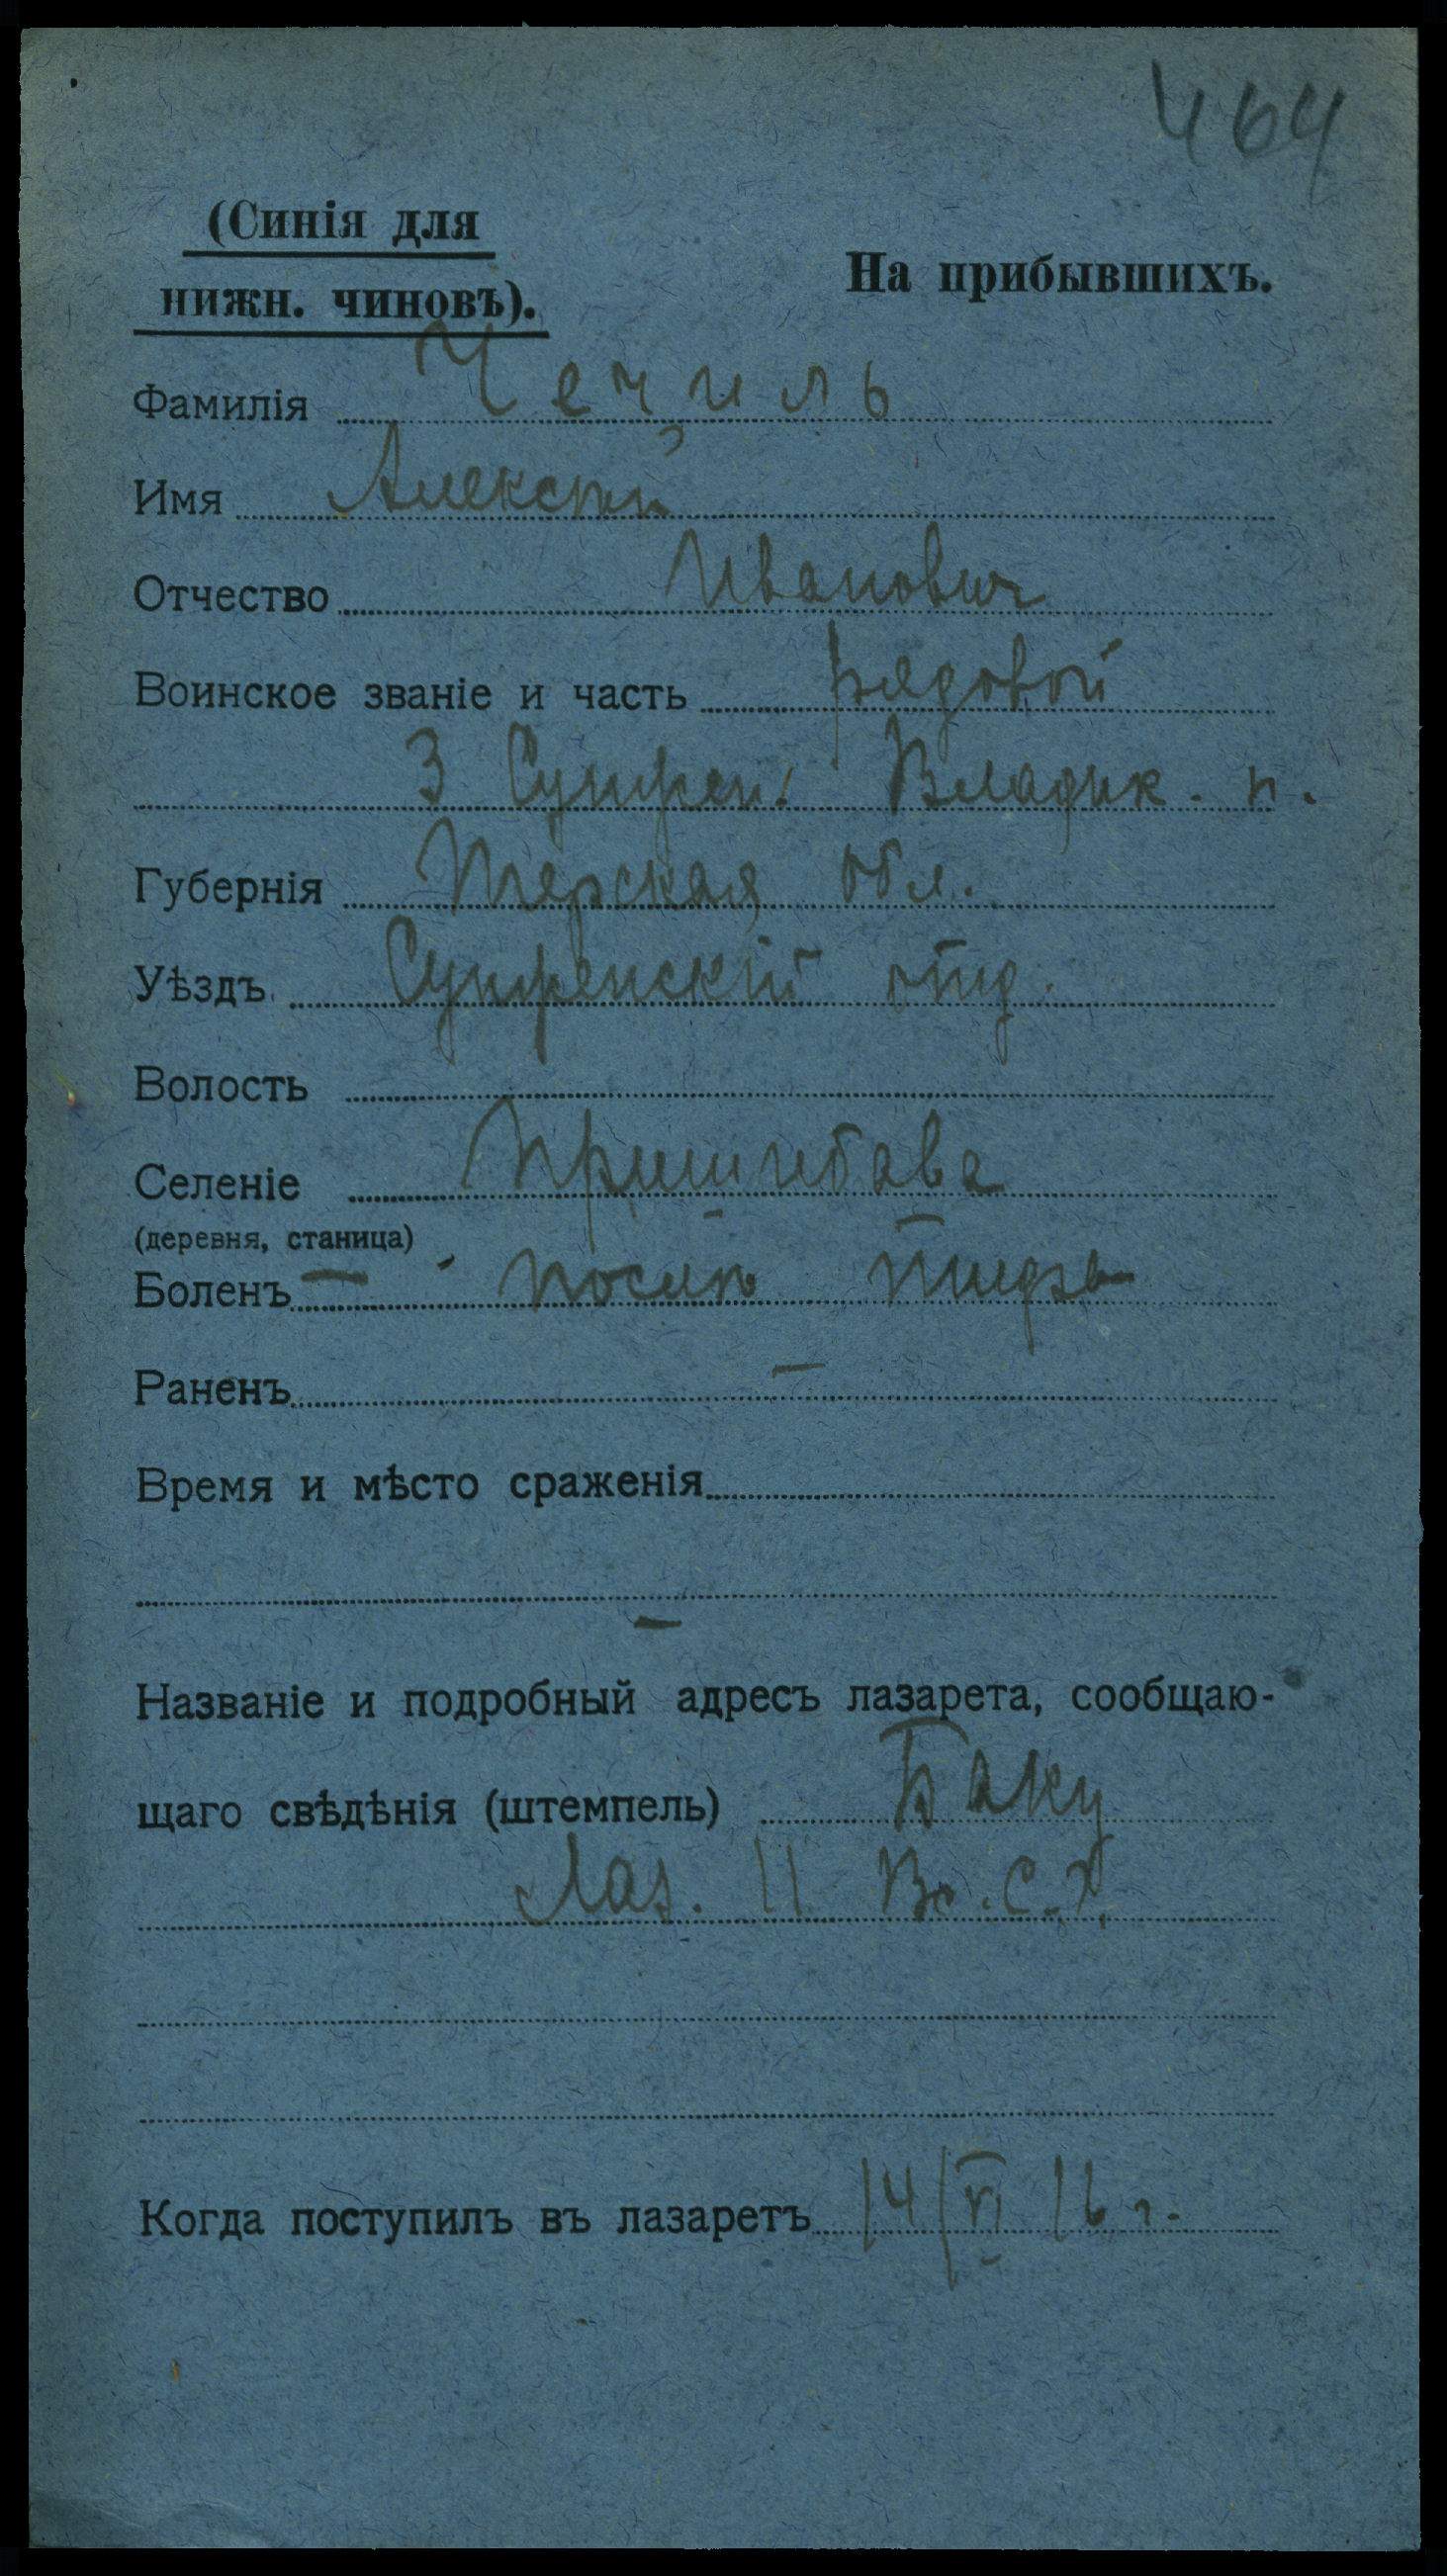 464
(Синія для
нижн. чиновъ).
На прибывшихъ.
Фамилія Чечиль
Имя Алексѣй
Отчество Иванович
Воинское званіе и часть рядовой
3 Сунжен. Владик. п.
Губернія Терская обл.
Уѣздъ Сунженскій отд.
Волость
Селеніе Пришибава
(деревня, станица)
Боленъ — послѣ тифа
Раненъ —
Время и мѣсто сраженія
—
Названіе и подробный адресъ лазарета, сообщаю-
щаго свѣдѣнія (штемпель) Баку
Лаз. 11 В. С. Г.
Когда поступилъ въ лазаретъ 14/VI 16 г.